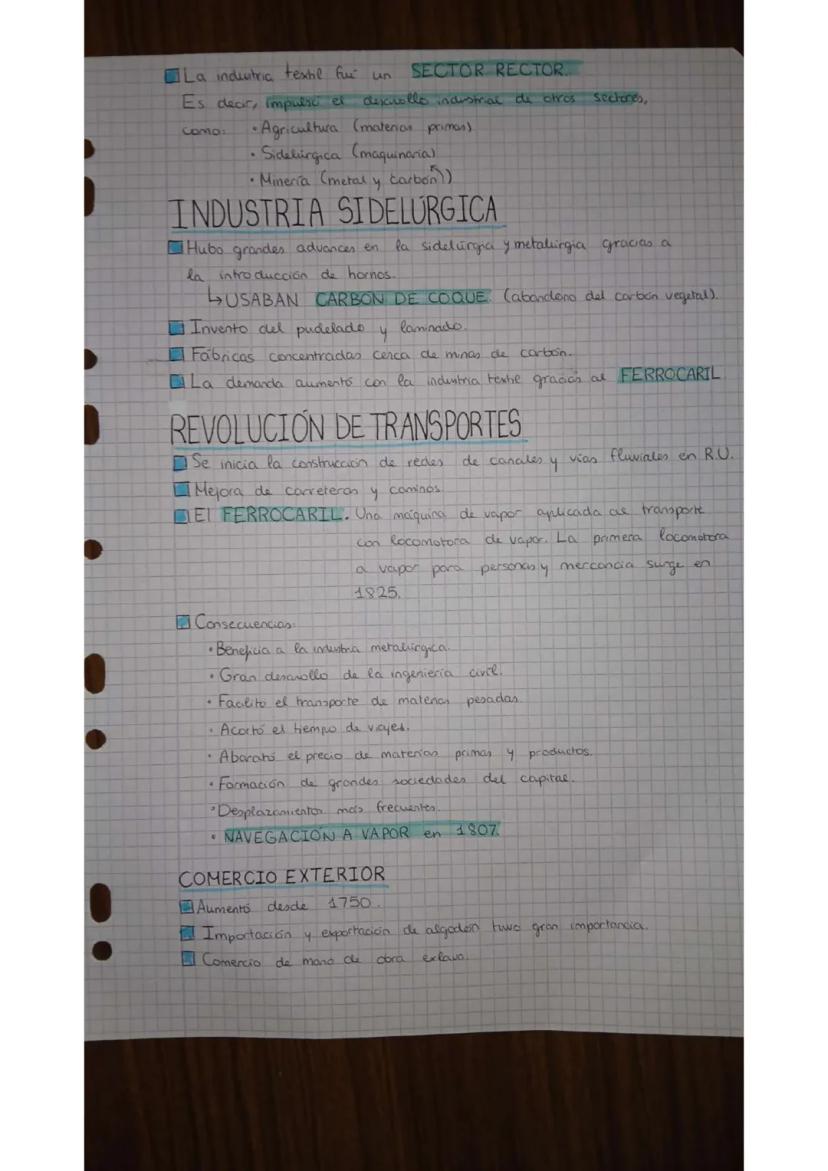 La industria textil fue un SECTOR RECTOR.
Es decir, impulsó el desarrollo industrial de otros sectores,
como: • Agricultura (materias primas)
• Sidelúrgica (maquinaria)
• Minería (metal y carbón))
INDUSTRIA SIDELÚRGICA
Hubo grandes advances en la sidelúrgia y metalúrgia gracias a
la introducción de hornos.
↳ USABAN CARBÓN DE COQUE (abandono del carbón vegetal).
Invento del pudelado y laminado.
Fábricas concentradas cerca de minas de carbón.
La demanda aumentó con la industria textil gracias al FERROCARIL
REVOLUCIÓN DE TRANSPORTES
Se inicia la construcción de redes de canales y vías fluviales en R.U.
Mejora de carreteras y caminos
El FERROCARIL. Una máquina de vapor aplicada al transporte
con locomotora de vapor. La primera locomotora
a vapor para personas y mercancia surge en
1825.
Consecuencias:
• Beneficia a la industria metalúrgica.
• Gran desarrollo de la ingeniería civil.
• Facilito el transporte de materias pesadas.
• Acortó el tiempo de viajes.
• Abarató el precio de materias primas y productos.
• Formación de grandes sociedades del capital.
• Desplazamientos más frecuentes.
• NAVEGACIÓN A VAPOR en 1807.
COMERCIO EXTERIOR
Aumentó desde 1750.
Importación y exportación de algodón tuvo gran importancia.
Comercio de mano de obra exlava.